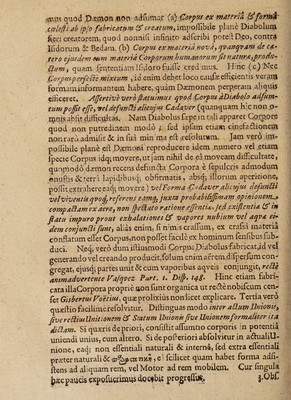 mus quod Dæmon non adsumat (a) Corpus ex materiâ & formâ
cælesti ab ipso fabricatum & creatum, impossibile planè Diabolum
fieri creatorem, quod nonnisi infinito adscribi potest Deo, contra
Isidorum & Bedam. (b) Corpus ex materiâ novâ, quanquam de cæ-
tero ejusdem cum materiâ Corporum humanorum sit naturæ, produc-
tum, quam sententiam Isidoro fuisse cred mus. Hinc (c) Nec
Corpus perfectè mixtum, id enim debet loco causæ efficientis veram
formam informantem habere, quàm Dæmonem perperam aliquis
effecerit. Asserivè verò statuimus quod Corpus à Diabolo adsum-
tum posset esse, vel defuncti alicujus Cadaver (quanquam hic non o-
mnis absit difficultas. Nam Diabolus sæpe in tali apparet Corpore
quod non putredinem modò, sed ipsam etiam exsiccationem
jam rarò admisit & in sua mix ma est resolutum. Jam verò im-
possibile planè est Dæmoni reproducere idem numero vel etiam
Specie Corpus idq; movere, ut jam nihil de eâ moveam difficultate,
quomodò dæmon recens defuncta Corpora è sepulcris admodum
angustis & terrâ lapidibusq; obfirmatis, absq; illorum apertione,
possit extrahere eaq; movere) vel Forma Cadaver alicujus defuncti
vel viventis quoq; referens, eamq; juxta probabilissimam opinionem
compactam ex aere, non spectato ratione essentiæ, sed existentiæ & in
statu impuro prout exhalationes & vapores nubium vel aqua ei-
dem conjuncti sunt, aliàs enim, si nimis crassum, ex crassâ materiâ
constatum esset Corpus, non posset facilè ex hominum sensibus sub-
duci. Neq; verò dum istiusmodi Corpus Diabolus fabricat, id vel
generando vel creando producit, solùm enim aërem dispersum con-
gregat, ejusq; partes unit & cum vaporibus aqueis conjungit, rectè
animadvertente Valspero Part. 1. Disp. 148. Hinc etiam fabri-
cata illa Corpora propriè non sunt organica ut rectè nobiscum cen-
set Gisbertus Voëtius, quæ prolixius non licet explicare. Tertia verò
quæstio facilè resolvitur. Distinguas modò inter actum Unionis,
sive rectius Unitionem & Statum Unionis sive Unionem formaliter ita
dictam. Si quæris de priori, consistit assumtio corporis in potentia
uniendi unius, cum altero. Si de posteriori absolvitur in actuali U-
nione, eaq; non essentiali naturali & internâ, sed extra essentiali
præter naturali & scilicet quam habet forma adsi-
stens ad aliquam rem, vel Motor ad rem mobilem. Cur singula
hæc paucis exposuerimus docebit progressus. 3. Obs.